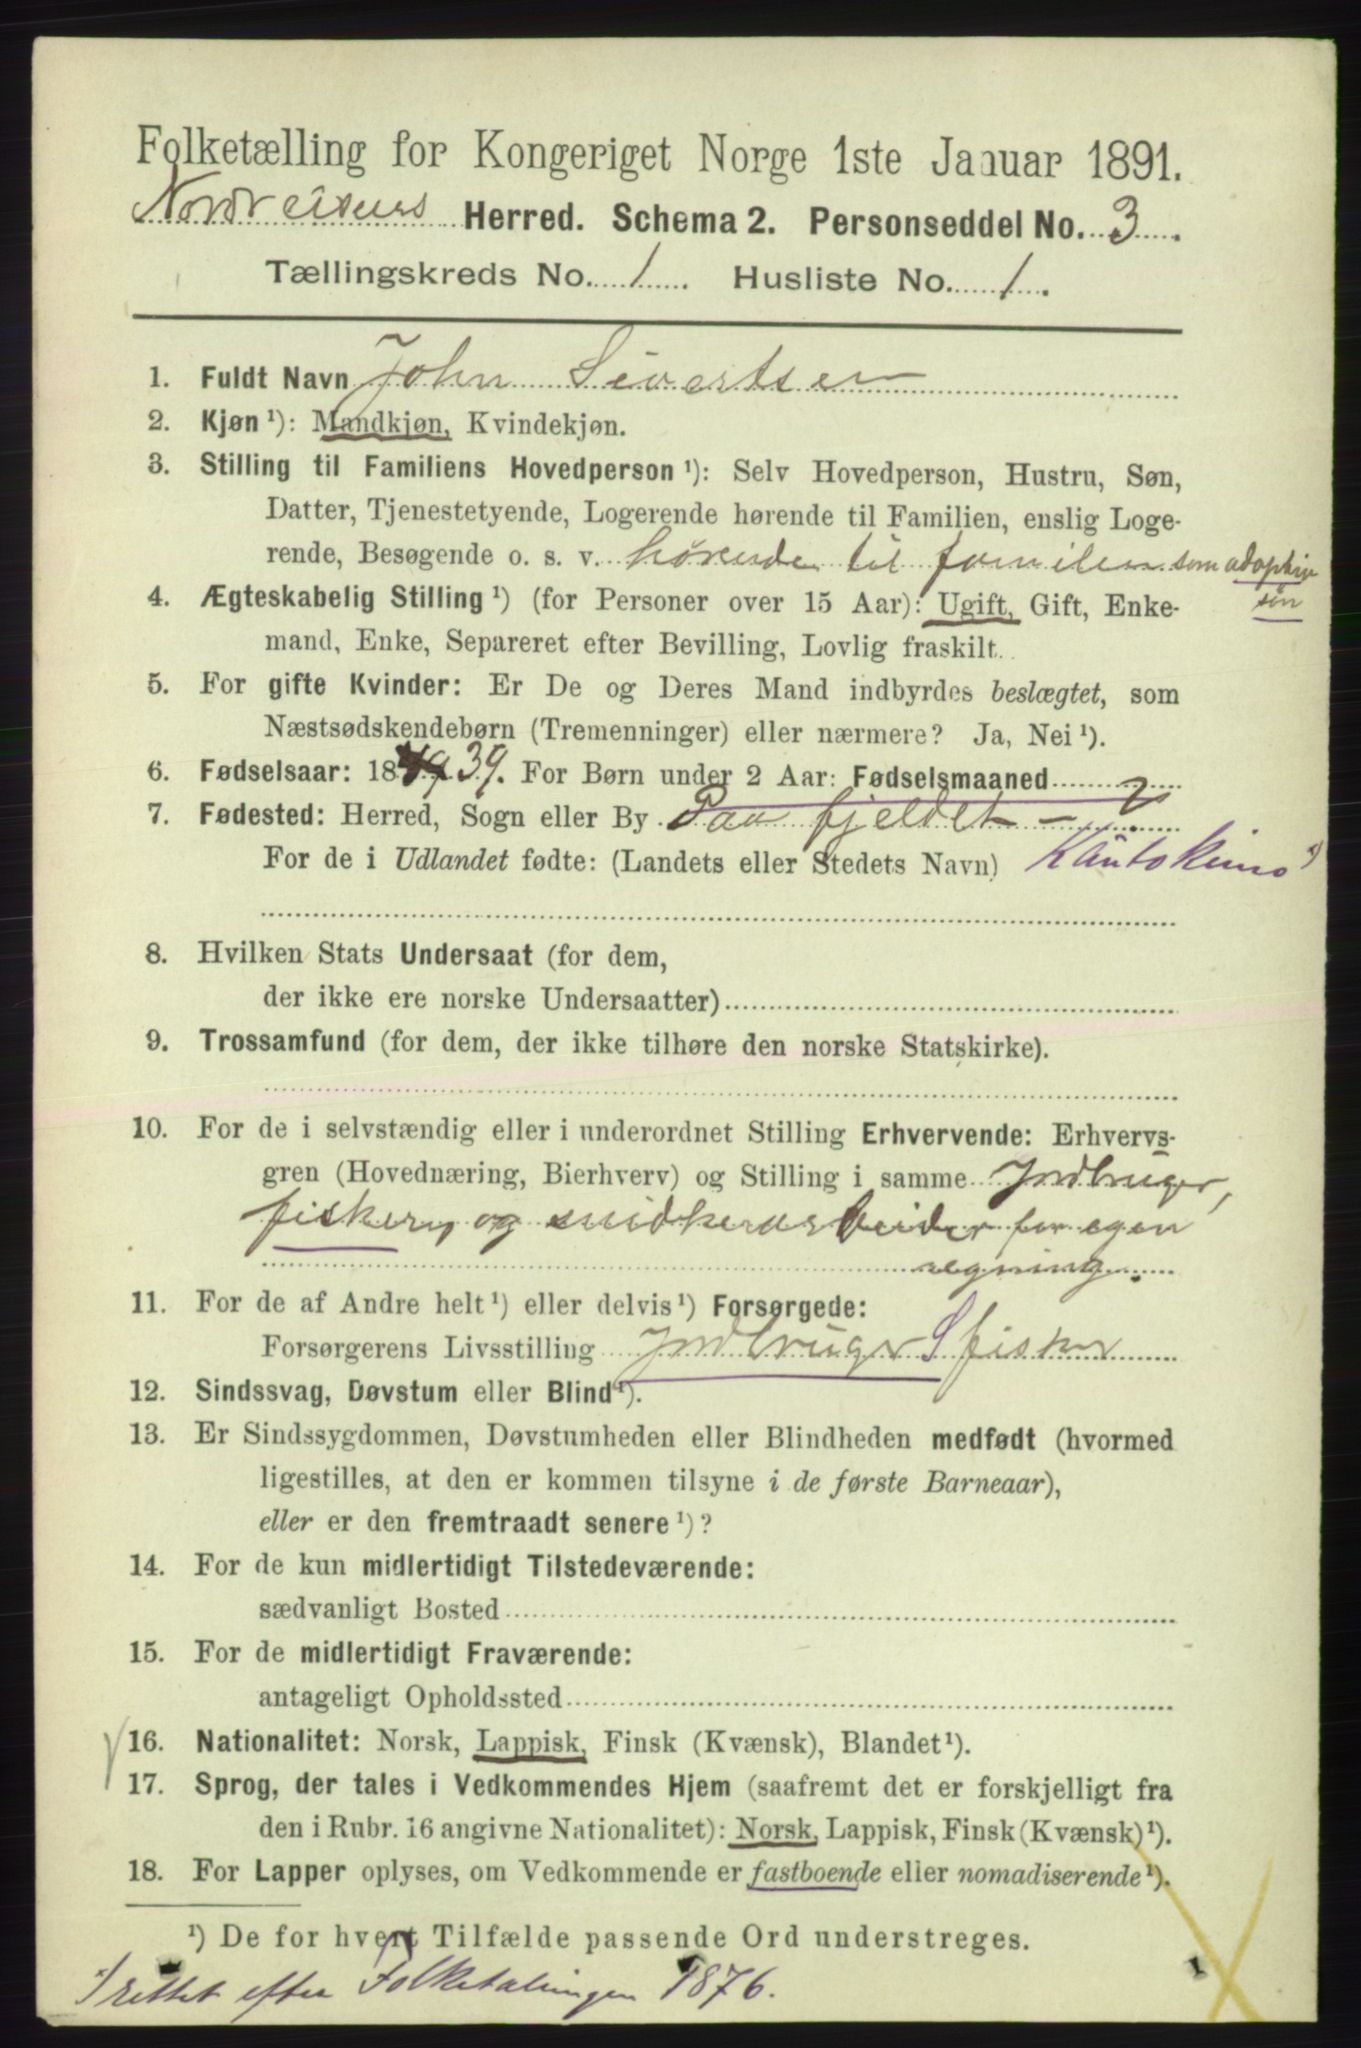 Folketælling for Kongeriget Norge 1ste Januar 1891.
Nordreisens Herred. Schema 2. Personseddel No. 3.
Tællingskreds No. 1. Husliste No. 1.
1. Fuldt Navn John Sivertsen
2. Kjøn ¹): Mandkjøn, Kvindekjøn.
3. Stilling til Familiens Hovedperson ¹): Selv Hovedperson, Hustru, Søn,
Datter, Tjenestetyende, Logerende hørende til Familien, enslig Loge-
rende, Besøgende o. s. v. hørende til familien som adoptiv
søn
4. Ægteskabelig Stilling ¹) (for Personer over 15 Aar): Ugift, Gift, Enke-
mand, Enke, Separeret efter Bevilling, Lovlig fraskilt.
5. For gifte Kvinder: Er De og Deres Mand indbyrdes beslægtet, som
Næstsødskendebørn (Tremenninger) eller nærmere? Ja, Nei ¹).
6. Fødselsaar: 18 39. For Børn under 2 Aar: Fødselsmaaned
7. Fødested: Herred, Sogn eller By Paa fjeldet - ?
For de i Udlandet fødte: (Landets eller Stedets Navn) Kautokeino *)
8. Hvilken Stats Undersaat (for dem,
der ikke ere norske Undersaatter)
9. Trossamfund (for dem, der ikke tilhøre den norske Statskirke).
10. For de i selvstændig eller i underordnet Stilling Erhvervende: Erhvervs-
gren (Hovednæring, Bierhverv) og Stilling i samme Jordbruger,
fiskery og snidkerarbeider for egen
regning.
11. For de af Andre helt ¹) eller delvis ¹) Forsørgede:
Forsørgerens Livsstilling Jordbruger & fisker
12. Sindssvag, Døvstum eller Blind ¹).
13. Er Sindssygdommen, Døvstumheden eller Blindheden medfødt (hvormed
ligestilles, at den er kommen tilsyne i de første Barneaar),
eller er den fremtraadt senere ¹)?
14. For de kun midlertidigt Tilstedeværende:
sædvanligt Bosted
15. For de midlertidigt Fraværende:
antageligt Opholdssted
16. Nationalitet: Norsk, Lappisk, Finsk (Kvænsk), Blandet ¹).
17. Sprog, der tales i Vedkommendes Hjem (saafremt det er forskjelligt fra
den i Rubr. 16 angivne Nationalitet): Norsk, Lappisk, Finsk (Kvænsk) ¹).
18. For Lapper oplyses, om Vedkommende er fastboende eller nomadiserende ¹).
¹) De for hvert Tilfælde passende Ord understreges.
*) rettet efter Folketælingen 1876.